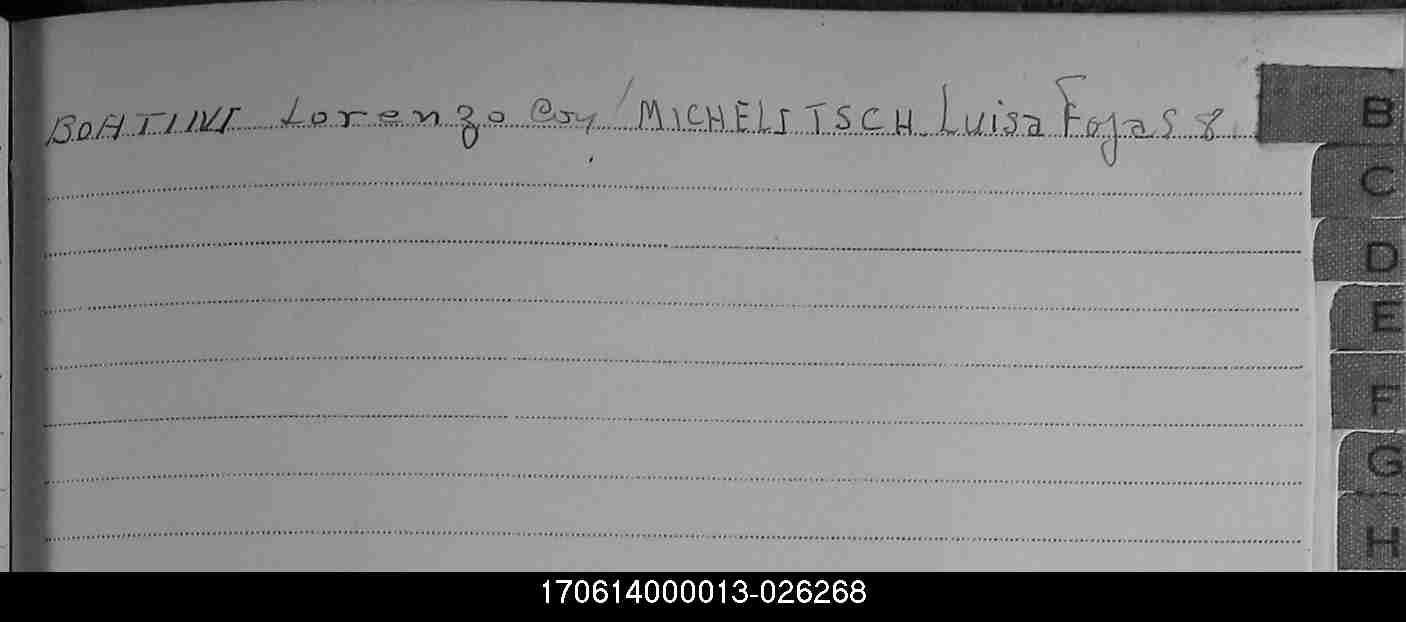 BOATINI Lorenzo Coy/MICHELITSCH Luisa Fojas 8
B
C
D
E
F
G
H
170614000013-026268